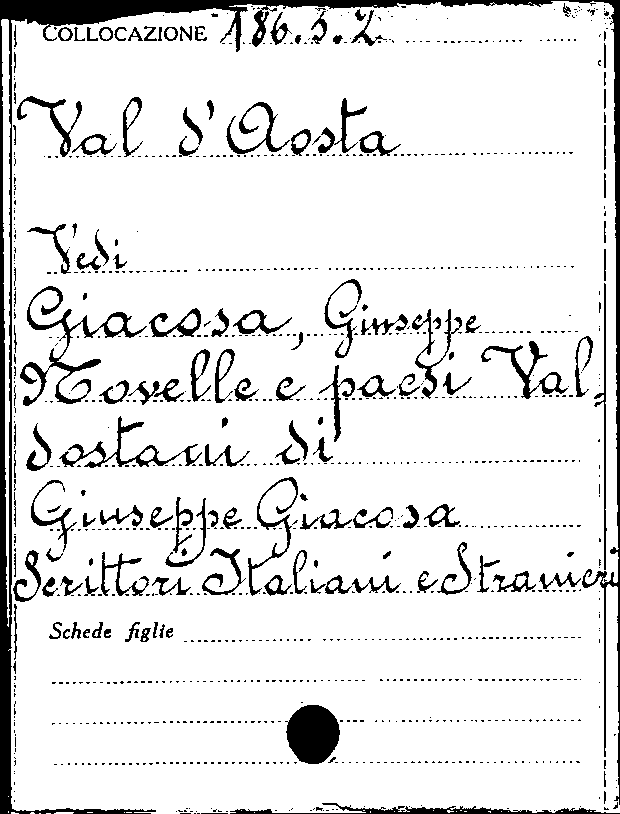 COLLOCAZIONE 186.5.2
Val d'Aosta
Vedi
Giacosa, Giuseppe
Novelle e paesi Val=
dostani di
Giuseppe Giacosa
Scrittori Italiani e Stranieri
Schede figlie